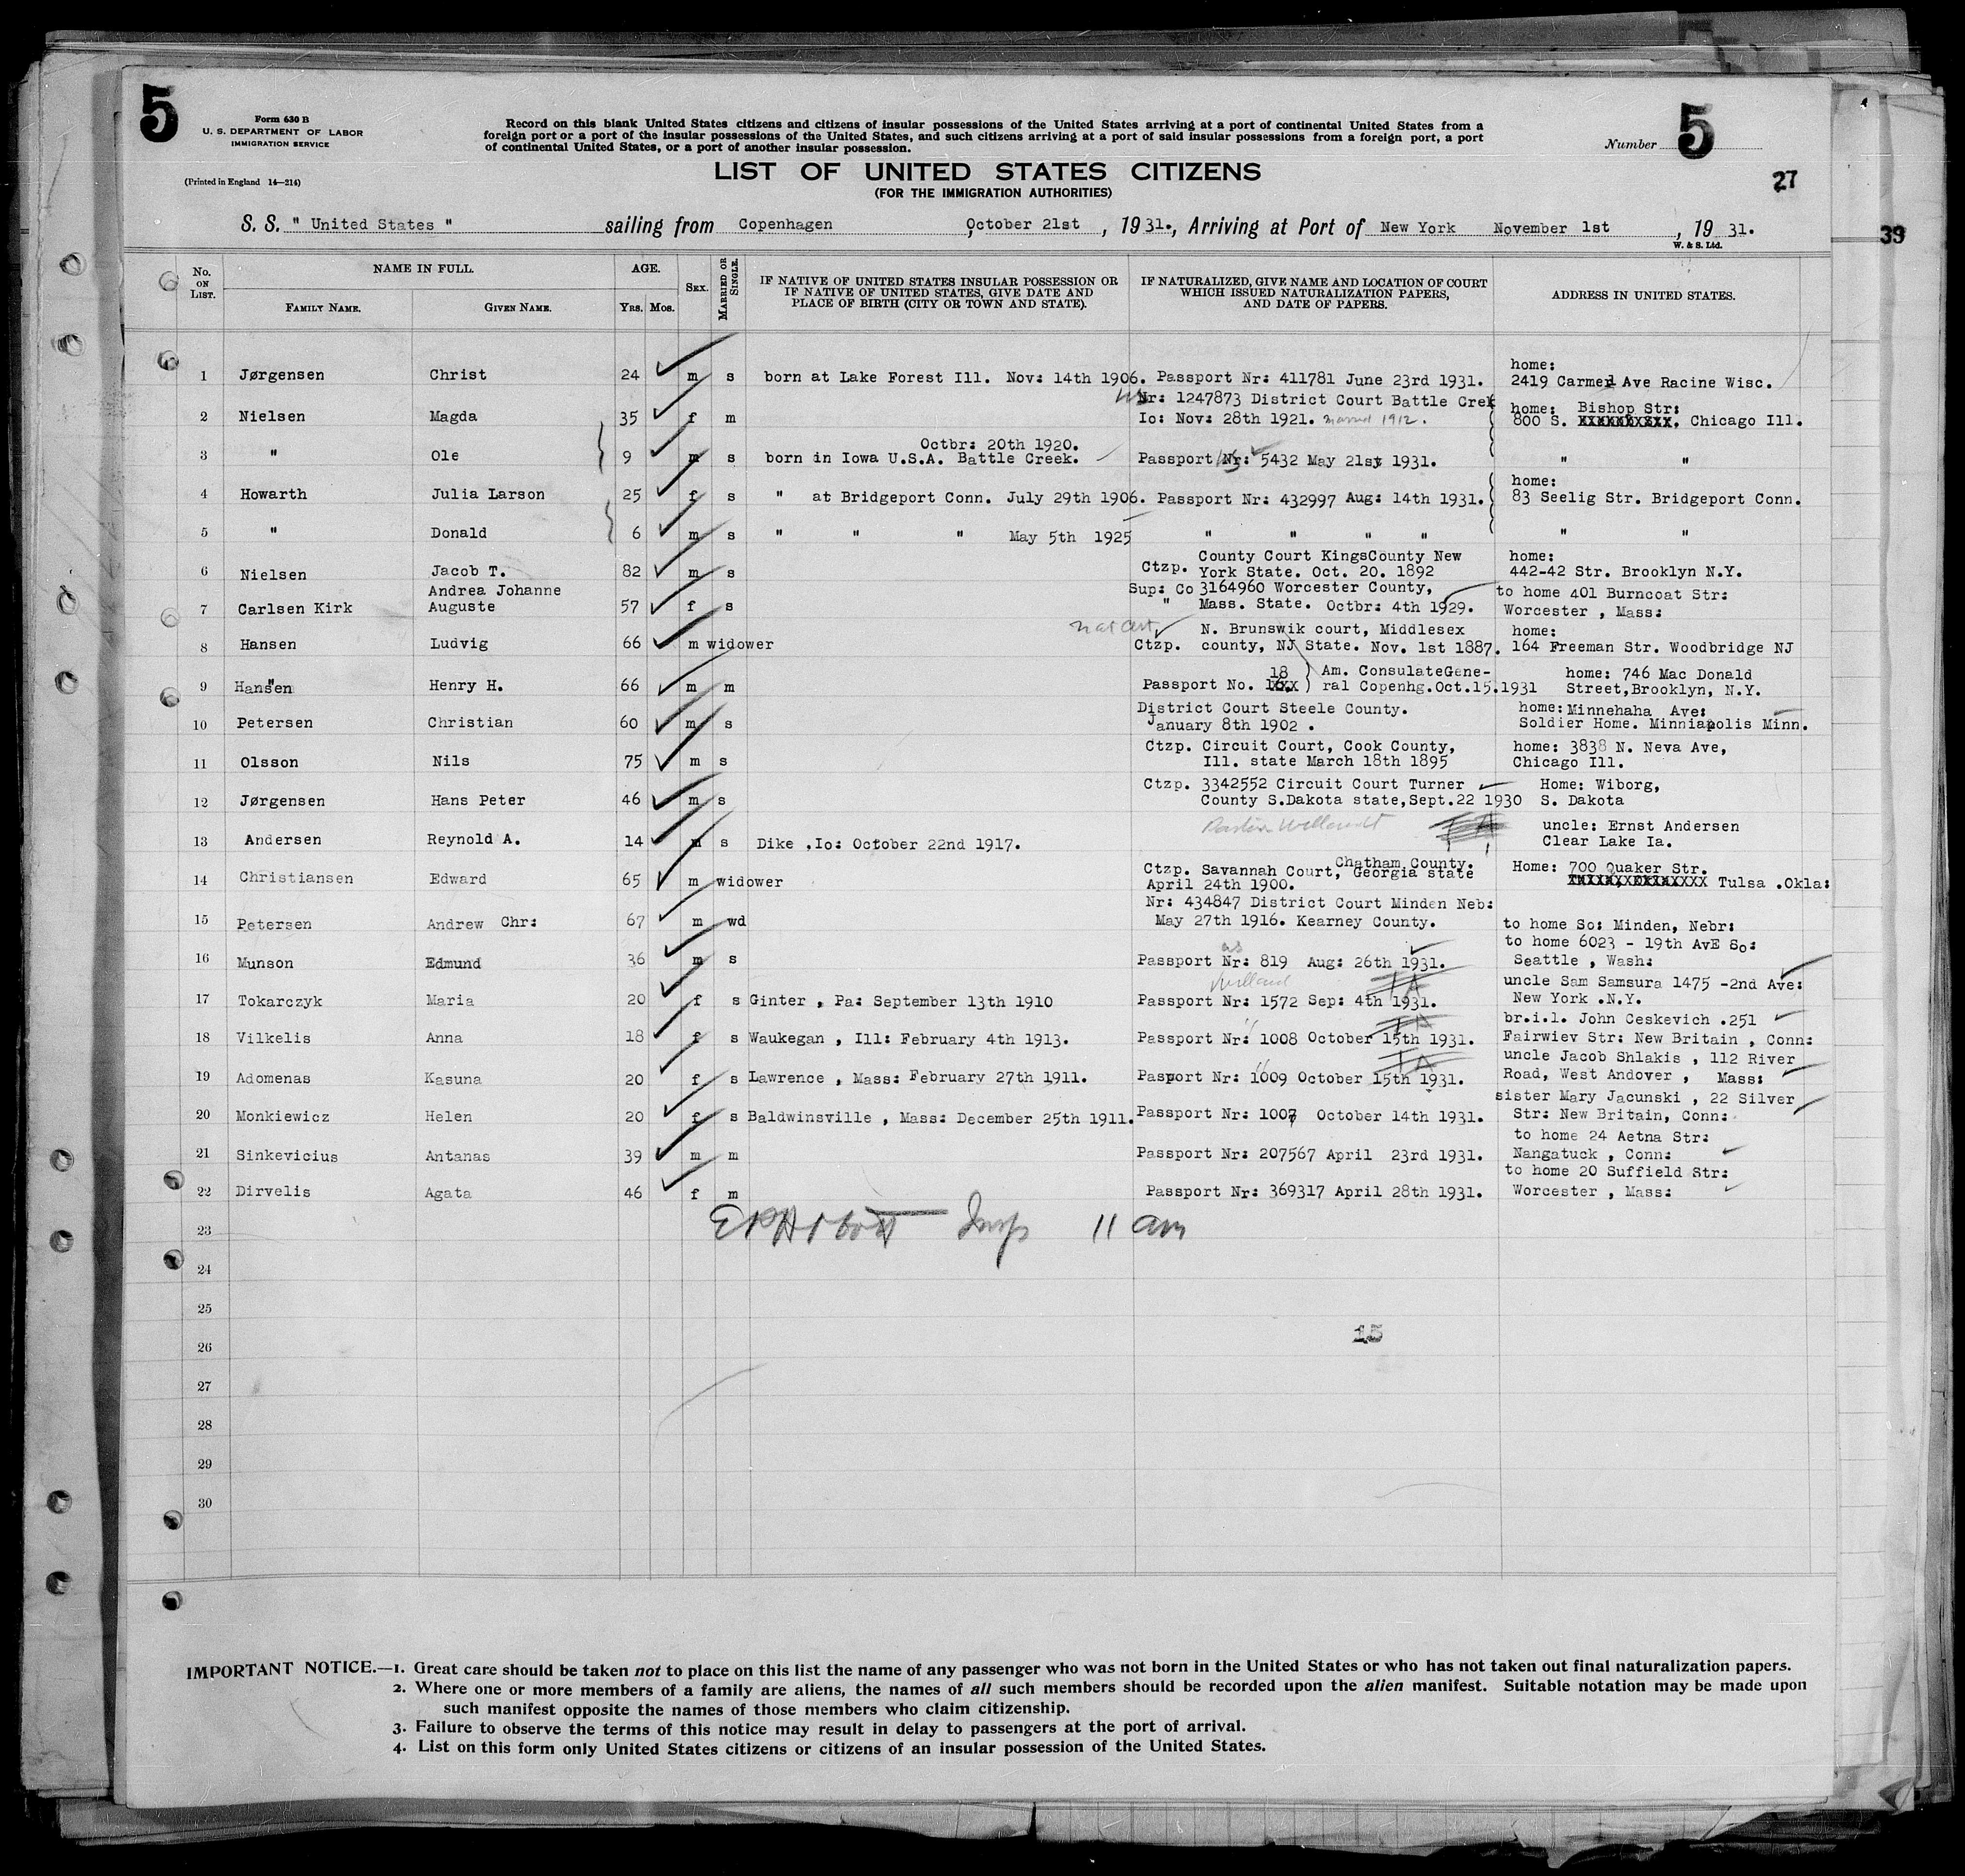 5
Form 630 B
U. S. DEPARTMENT OF LABOR
IMMIGRATION SERVICE
(Printed in England 14—214)
Record on this blank United States citizens and citizens of insular possessions of the United States arriving at a port of continental United States from a
foreign port or a port of the insular possessions of the United States, and such citizens arriving at a port of said insular possessions from a foreign port, a port
of continental United States, or a port of another insular possession.
Number 5
LIST OF UNITED STATES CITIZENS
(FOR THE IMMIGRATION AUTHORITIES)
27
39
S. S. " United States " sailing from Copenhagen October 21st , 1931., Arriving at Port of New York November 1st , 19 31.
W. & S. Ltd.
No. ON LIST.
NAME IN FULL.
FAMILY NAME.
GIVEN NAME.
AGE.
YRS. MOS.
SEX.
MARRIED OR SINGLE.
IF NATIVE OF UNITED STATES INSULAR POSSESSION OR
IF NATIVE OF UNITED STATES, GIVE DATE AND
PLACE OF BIRTH (CITY OR TOWN AND STATE).
IF NATURALIZED, GIVE NAME AND LOCATION OF COURT
WHICH ISSUED NATURALIZATION PAPERS,
AND DATE OF PAPERS.
ADDRESS IN UNITED STATES.
home:
1 Jørgensen Christ 24 m s born at Lake Forest Ill. Nov: 14th 1906. Passport Nr: 411781 June 23rd 1931. 2419 Carmel Ave Racine Wisc.
Nr: 1247873 District Court Battle Crek home: Bishop Str:
2 Nielsen Magda 35 f m Io: Nov: 28th 1921. married 1912. 800 S. XXXXXXXXXX, Chicago Ill.
Octbr: 20th 1920.
3 " Ole 9 m s born in Iowa U.S.A. Battle Creek. Passport Nr: 5432 May 21st 1931. " "
home:
4 Howarth Julia Larson 25 f s " at Bridgeport Conn. July 29th 1906. Passport Nr: 432997 Aug: 14th 1931. 83 Seelig Str. Bridgeport Conn.
5 " Donald 6 m s " " " May 5th 1925 " " " " " "
County Court KingsCounty New home:
6 Nielsen Jacob T. 82 m s Ctzp. York State. Oct. 20. 1892 442-42 Str. Brooklyn N.Y.
Andrea Johanne Sup: Co 3164960 Worcester County, to home 401 Burncoat Str:
7 Carlsen Kirk Auguste 57 f s " Mass. State. Octbr: 4th 1929. Worcester , Mass:
nat cert N. Brunswik court, Middlesex home:
8 Hansen Ludvig 66 m widower Ctzp. county, NJ State. Nov. 1st 1887. 164 Freeman Str. Woodbridge NJ
18 Am. ConsulateGene- home: 746 Mac Donald
9 Hansen Henry H. 66 m m Passport No. XXX ) ral Copenhg.Oct.15.1931 Street,Brooklyn, N.Y.
District Court Steele County. home:Minnehaha Ave:
10 Petersen Christian 60 m s January 8th 1902 . Soldier Home. Minniapolis Minn.
Ctzp. Circuit Court, Cook County, home: 3838 N. Neva Ave,
11 Olsson Nils 75 m s Ill. state March 18th 1895 Chicago Ill.
Ctzp. 3342552 Circuit Court Turner Home: Wiborg,
12 Jørgensen Hans Peter 46 m s County S.Dakota state,Sept.22 1930 S. Dakota
uncle: Ernst Andersen
13 Andersen Reynold A. 14 m s Dike .Io: October 22nd 1917. Clear Lake Ia.
Ctzp. Savannah Court, Chatham County. Georgia state Home: 700 Quaker Str.
14 Christiansen Edward 65 m widower April 24th 1900. Tulsa .Okla:
Nr: 434847 District Court Minden Neb:
15 Petersen Andrew Chr: 67 m wd May 27th 1916. Kearney County. to home So: Minden, Nebr:
to home 6023 - 19th AvE So:
16 Munson Edmund 36 m s Passport Nr: 819 Aug: 26th 1931. Seattle , Wash:
uncle Sam Samsura 1475 -2nd Ave:
17 Tokarczyk Maria 20 f s Ginter , Pa: September 13th 1910 Passport Nr: 1572 Sep: 4th 1931. New York .N.Y.
br.i.l. John Ceskevich .251
18 Vilkelis Anna 18 f s Waukegan , Ill: February 4th 1913. Passport Nr: 1008 October 15th 1931. Fairwiev Str: New Britain , Conn:
uncle Jacob Shlakis , 112 River
19 Adomenas Kasuna 20 f s Lawrence , Mass: February 27th 1911. Pasport Nr: 1009 October 15th 1931. Road, West Andover , Mass:
sister Mary Jacunski , 22 Silver
20 Monkiewicz Helen 20 f s Baldwinsville , Mass: December 25th 1911. Passport Nr: 1007 October 14th 1931. Str: New Britain, Conn:
to home 24 Aetna Str:
21 Sinkevicius Antanas 39 m m Passport Nr: 207567 April 23rd 1931. Nangatuck , Conn:
to home 20 Suffield Str:
22 Dirvelis Agata 46 f m Passport Nr: 369317 April 28th 1931. Worcester , Mass:
23 Insp 11 am
24
25
15
26
27
28
29
30
IMPORTANT NOTICE.—1. Great care should be taken not to place on this list the name of any passenger who was not born in the United States or who has not taken out final naturalization papers.
2. Where one or more members of a family are aliens, the names of all such members should be recorded upon the alien manifest. Suitable notation may be made upon
such manifest opposite the names of those members who claim citizenship.
3. Failure to observe the terms of this notice may result in delay to passengers at the port of arrival.
4. List on this form only United States citizens or citizens of an insular possession of the United States.